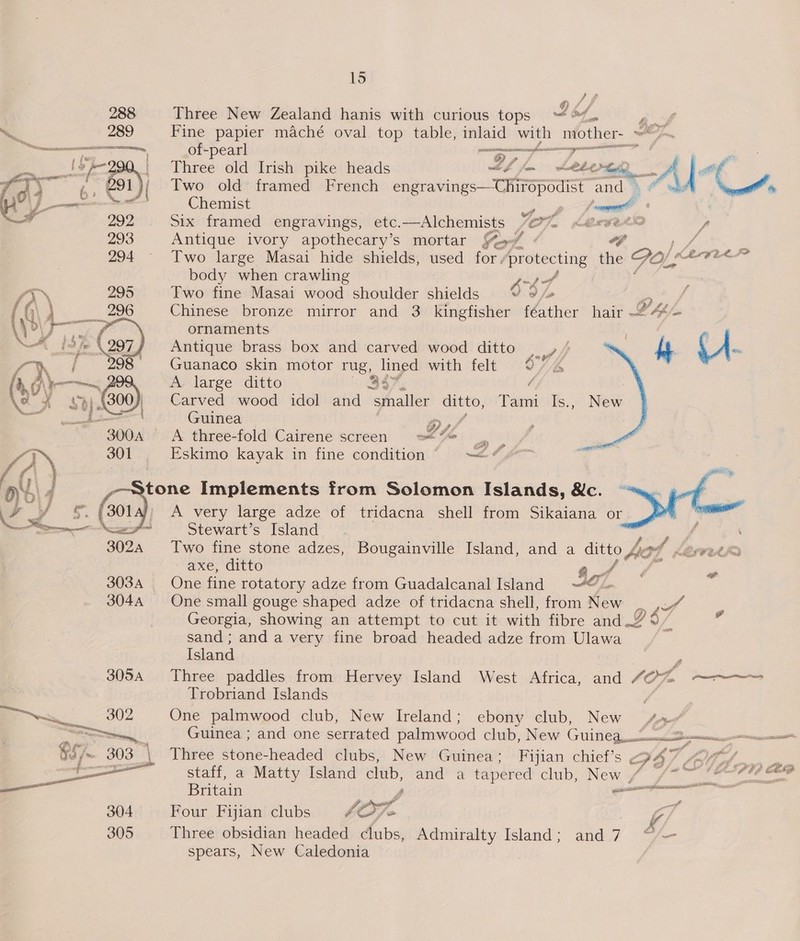 15
288 Three New Zealand hanis with curious tops
289 Fine papier maché oval top table, inlaid with mother-
of-pearl
290 Three old Irish pike heads
291 Two old framed French engravings—Chiropodist and
Chemist
292 Six framed engravings, etc.—Alchemists
293 Antique ivory apothecary's mortar
294 Two large Masai hide shields, used for protecting the
body when crawling
295 Two fine Masai wood shoulder shields
296 Chinese bronze mirror and 3 kingfisher feather hair
ornaments
297 Antique brass box and carved wood ditto
298 Guanaco skin motor rug, lined with felt
299 A large ditto
300 Carved wood idol and smaller ditto, Tami Is., New
Guinea
300A A three-fold Cairene screen
301 Eskimo kayak in fine condition
Stone Implements from Solomon Islands, &c.
301A A very large adze of tridacna shell from Sikaiana or
Stewart's Island
302A Two fine stone adzes, Bougainville Island, and a ditto
axe, ditto
303A One fine rotatory adze from Guadalcanal Island
304A One small gouge shaped adze of tridacna shell, from New
Georgia, showing an attempt to cut it with fibre and
sand; and a very fine broad headed adze from Ulawa
Island
305A Three paddles from Hervey Island West Africa, and
Trobriand Islands
302 One palmwood club, New Ireland; ebony club, New
Guinea; and one serrated palmwood club, New Guinea
303 Three stone-headed clubs, New Guinea; Fijian chief's
staff, a Matty Island club, and a tapered club, New
Britain
304 Four Fijian clubs
305 Three obsidian headed clubs, Admiralty Island; and 7
spears, New Caledonia